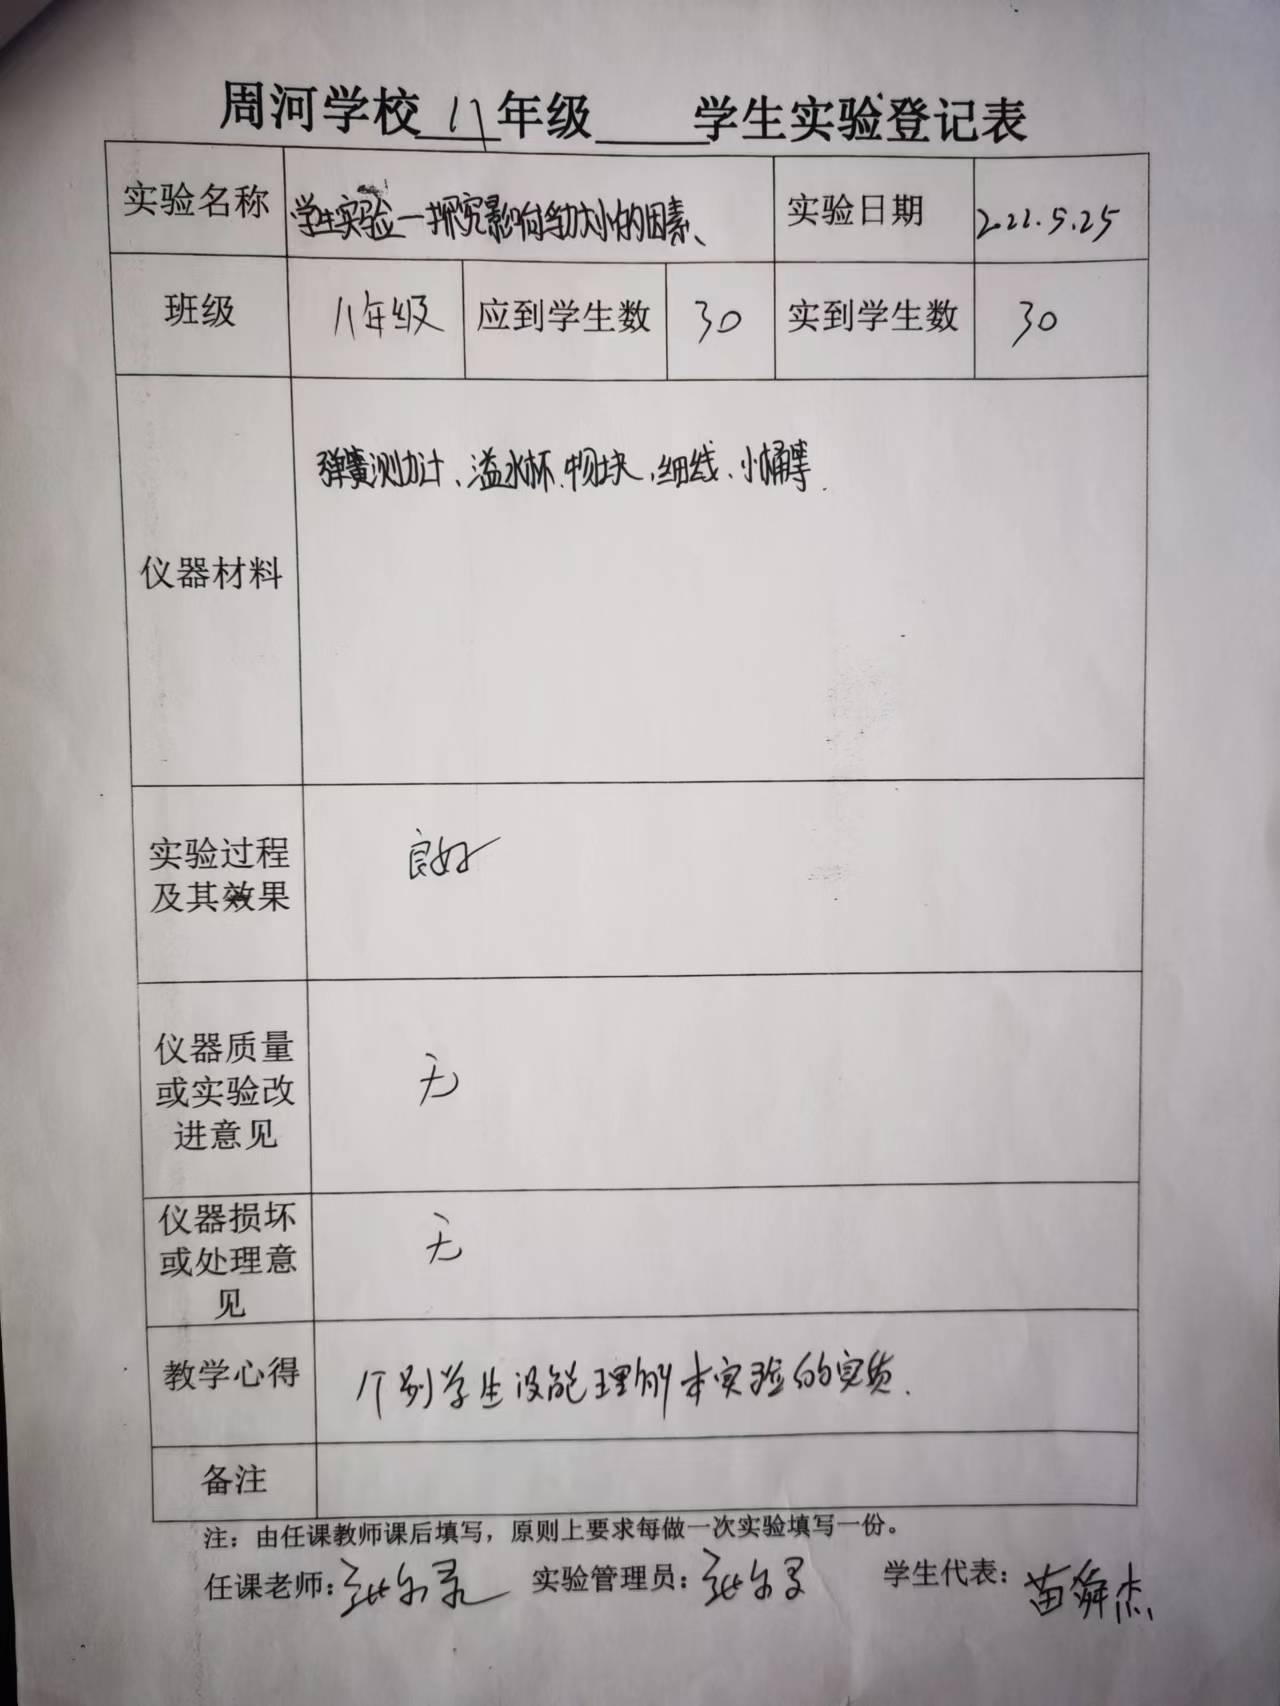 周河学校 八 年级 学生实验登记表
实验名称 学生实验一探究影响浮力大小的因素、 实验日期 2022.5.25
班级 八年级 应到学生数 30 实到学生数 30
弹簧测力计、溢水杯、物块、细线、小桶等.
仪器材料
实验过程 良好
及其效果
仪器质量
或实验改 无
进意见
仪器损坏
或处理意 无
见
教学心得 个别学生没能理解本实验的实质.
备注
注：由任课教师课后填写，原则上要求每做一次实验填写一份。
任课老师: 实验管理员: 学生代表: 苗舜杰